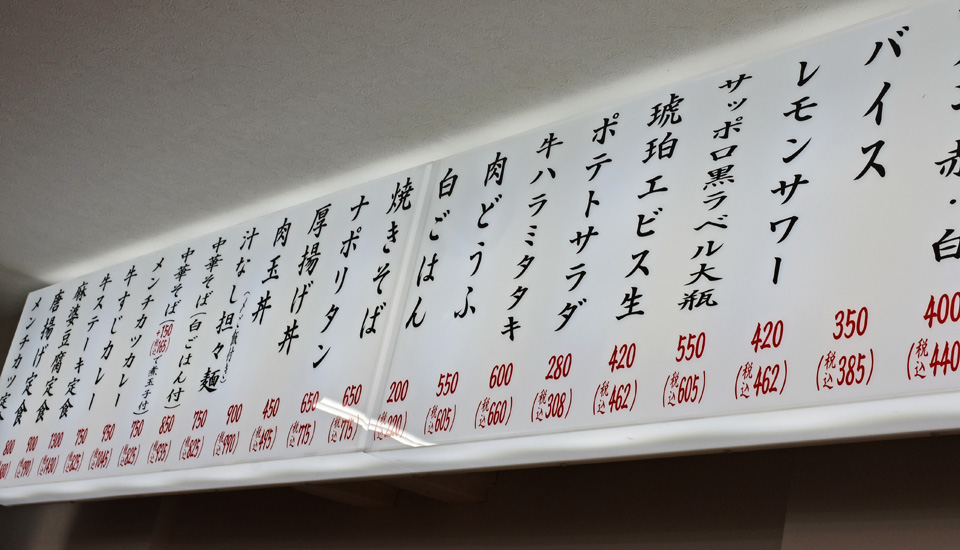 赤・白
400
(税込440
バイス
350
(税込385)
レモンサワー
420
(税込462)
サッポロ黒ラベル大瓶
550
(税込605)
琥珀エビス生
420
(税込462)
ポテトサラダ
280
(税込308)
牛ハラミタタキ
600
(税込660)
肉どうふ
550
(税込605)
白ごはん
200
(税込220)
焼きそば
650
(税込715)
ナポリタン
650
(税込715)
厚揚げ丼
450
(税込495)
肉玉丼
900
(税込990)
汁なし担々麺
750
(税込825)
中華そば(白ごはん付)
850
(税込935)
中華そば
+150
税込165
で煮玉子付)
750
(税込825)
メンチカツカレー
950
(税込1045)
牛すじカレー
750
(税込825)
牛ステーキ定食
1300
(税込1430)
麻婆豆腐定食
900
(税込990)
唐揚げ定食
800
メンチカツ定